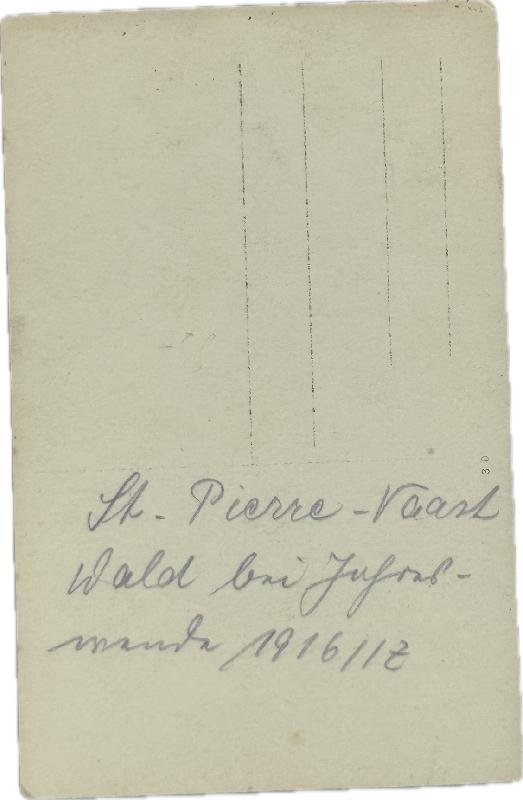 St. Pierre-Vaast
Wald bei Jahres-
wende 1916/17
30